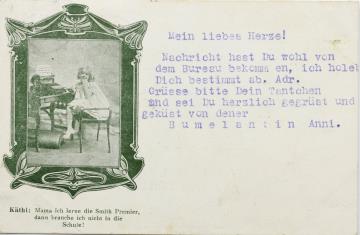 Mein liebes Herze!
Nachricht hast Du wohl von
dem Bureau bekommen, ich holel
Dich bestimmt ab. Adr.
Grüsse bitte Dein Tantchen
und sei Du herzlich gegrüst und
geküst von dener
Bumelantin Anni.
Käthi: Mama ich lerne die Smith Premier,
dann brauche ich nicht in die
Schule!